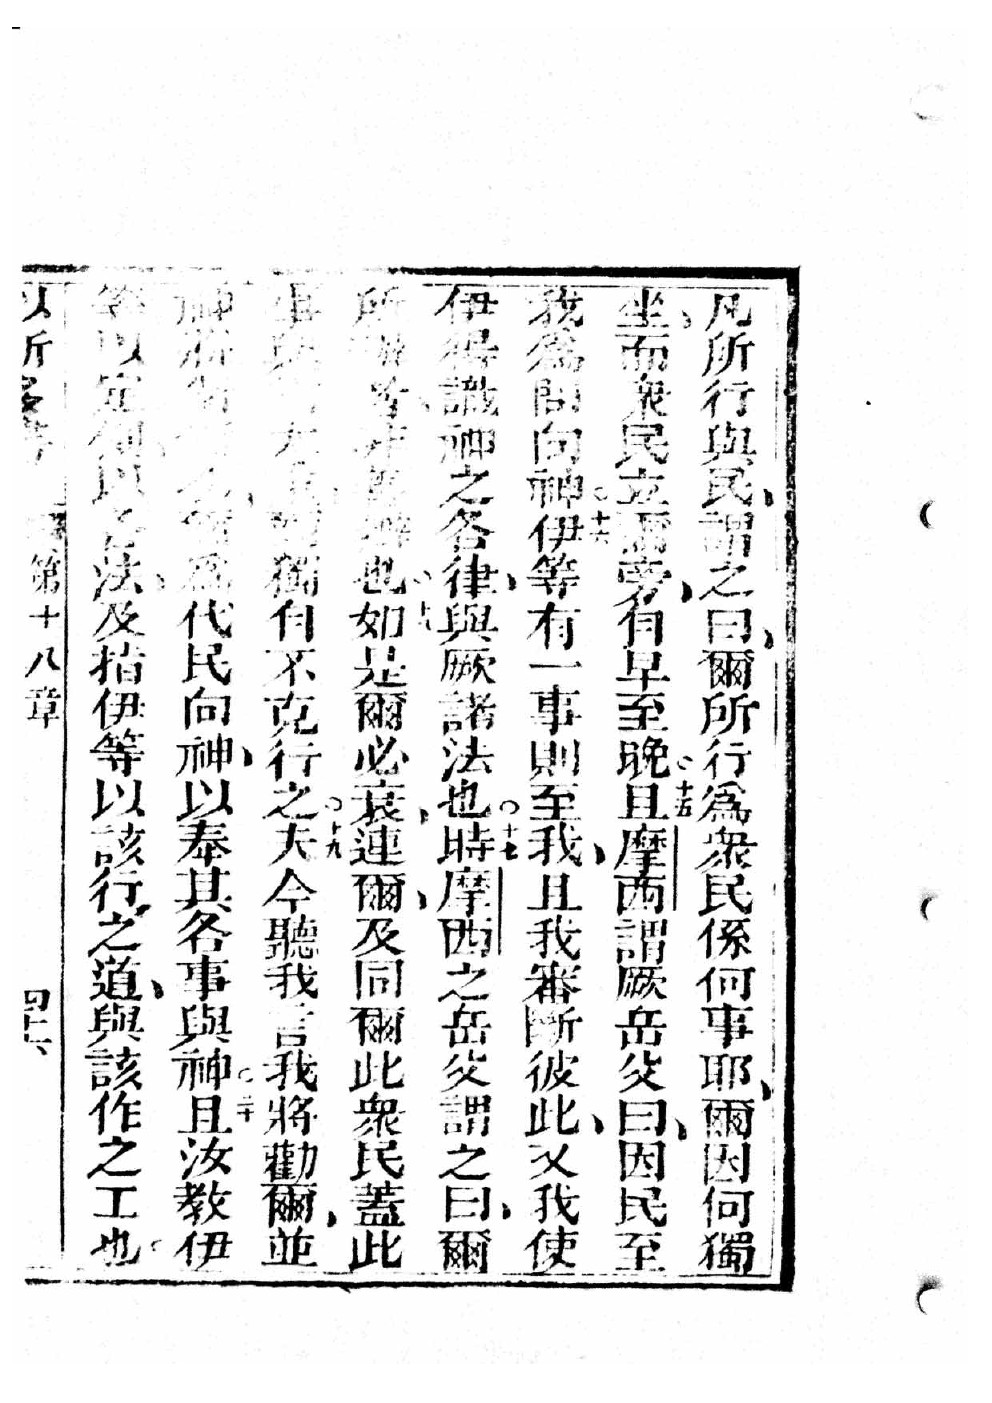 凡所行與民、謂之曰、爾所行爲衆民係何事耶、爾因何獨
坐、而衆民立爾旁、自早至晚。十五且摩西謂厥岳父曰、因民至
我爲問向神。十六伊等有一事則至我、且我審斷彼此、又我使
伊得識神之各律、與厥諸法也。十七時摩西之岳父謂之曰、爾
所 也。十八如是爾必衰、連爾、及同爾此衆民、蓋此
事 獨自不克行之。十九夫今聽我言、我將勸爾、並
神將 爾、 爲代民向神、以奉其各事與神。二十且汝教伊
等以定例以各法、及指伊等以該行之道、與該作之工也。
以所多書 第十八章 四十六